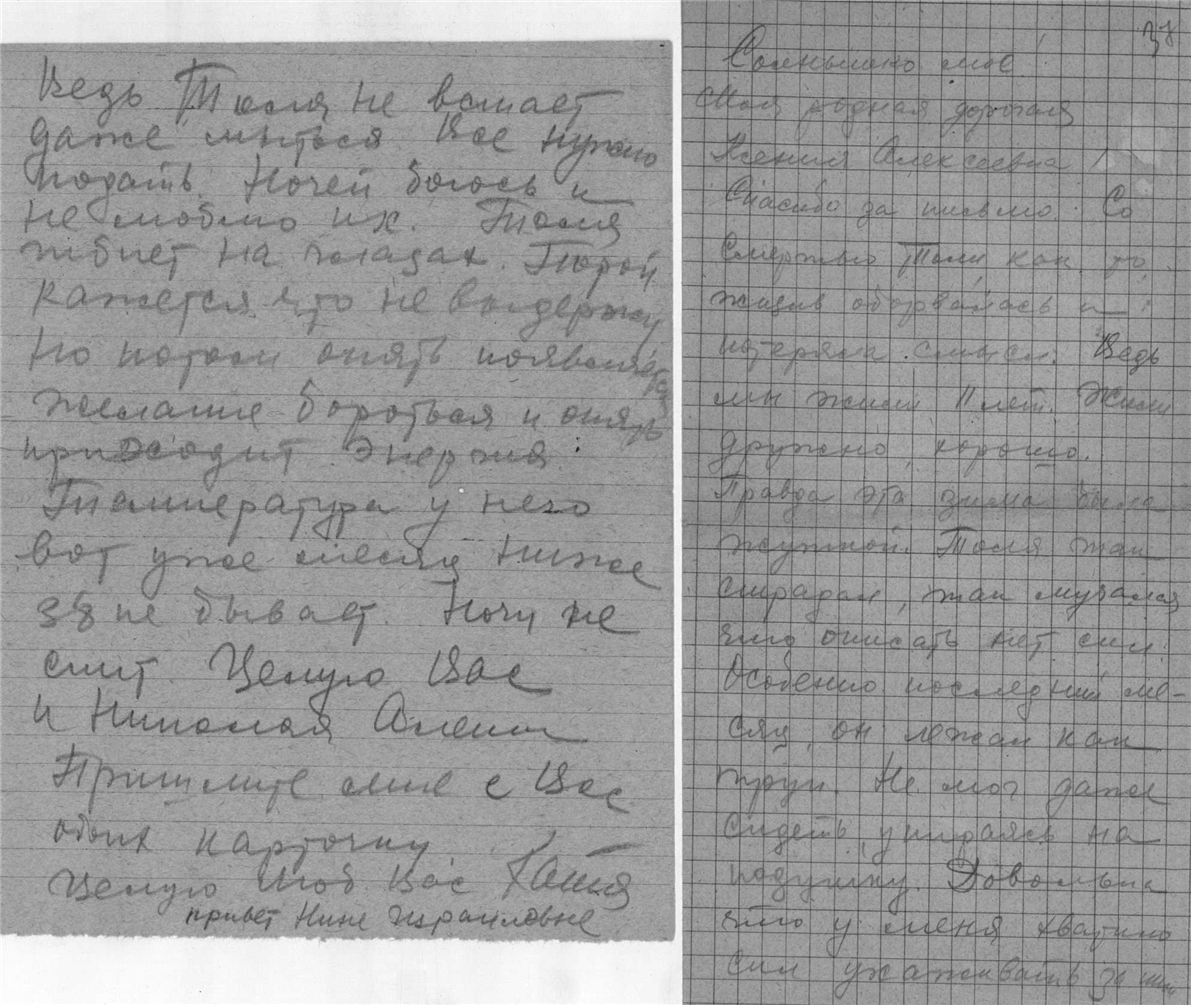 Ведь Толя не встает
даже мыться. Все нужно
подать. Ночей боюсь и
не люблю их. Толя
гибнет на глазах. Порой
кажется что не выдержу
но потом опять появляется
желание бороться и опять
приходит энергия.
Температура у него
вот уже месяц ниже
38 не бывает. Ночи не
спит. Целую Вас
и Николая Алекс
Пришлите мне с Вас
обоих карточку.
Целую Люб Вас Катя
привет Нине Израиловне
37
Солнышко мое!
Моя родная дорогая
Ксения Алексеевна!
Спасибо за письмо. Со
смертью Толи как то
жизнь оборвалась и
потеряла смысл. Ведь
мы жили 11 лет. Жили
дружно, хорошо.
Правда эта зима была
жуткой. Толя так
страдал, так мучался
что описать нет сил.
Особенно последний ме-
сяц, он лежал как
труп. Не мог даже
сидеть упираясь на
подушку. Довольна
что у меня хватило
сил ухаживать за ним